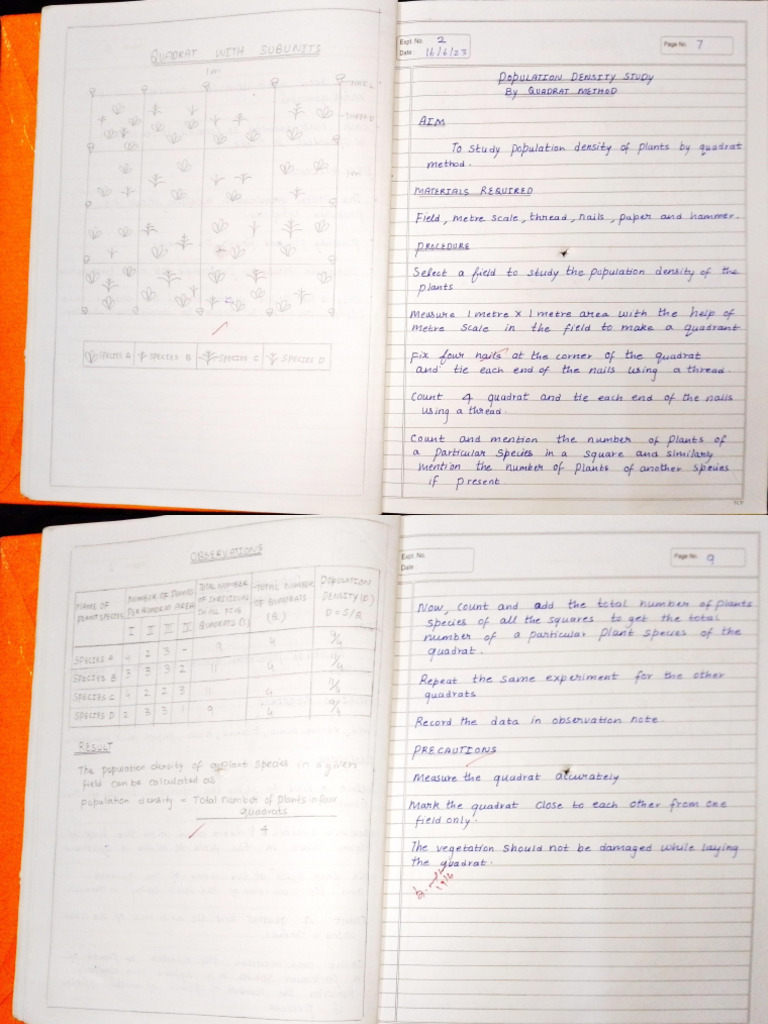 QUADRAT WITH SUBUNITS
1m
NAIL
THREAD
1m
SPECIES A
SPECIES B
SPECIES C
SPECIES D
Expt. No. 2
Date 16/6/23
Page No. 7
POPULATION DENSITY STUDY
BY QUADRAT METHOD
AIM
To study population density of plants by quadrat
method.
MATERIALS REQUIRED
Field, metre scale, thread, nails, paper and hammer.
PROCEDURE
Select a field to study the population density of the
plants
Measure 1 metre × 1 metre area with the help of
metre scale in the field to make a quadrant
Fix four nails at the corner of the quadrat
and tie each end of the nails using a thread.
Count 4 quadrat and tie each end of the nails
using a thread.
Count and mention the number of plants of
a particular species in a square and similarly
mention the number of plants of another species
if present
OBSERVATIONS
NAME OF PLANT SPECIES
NUMBER OF PLANTS PER QUADRAT AREA
I II III IV
TOTAL NUMBER OF INDIVIDUAL IN ALL FIVE QUADRATS (S)
TOTAL NUMBER OF QUADRATS (Q)
POPULATION DENSITY (D) D = S/Q
SPECIES A 4 2 3 - 9 4 9/4
SPECIES B 3 3 3 2 11 4 11/4
SPECIES C 4 2 2 3 11 4 11/4
SPECIES D 2 3 3 1 9 4 9/4
RESULT
The population density of a plant species in a given
field can be calculated as
Population density = Total number of plants in four
quadrats
4
Expt. No.
Date
Page No. 9
Now, count and add the total number of plants
species of all the squares to get the total
number of a particular plant species of the
quadrat.
Repeat the same experiment for the other
quadrats
Record the data in observation note.
PRECAUTIONS
Measure the quadrat accurately
Mark the quadrat close to each other from one
field only.
The vegetation should not be damaged while laying
the quadrat.